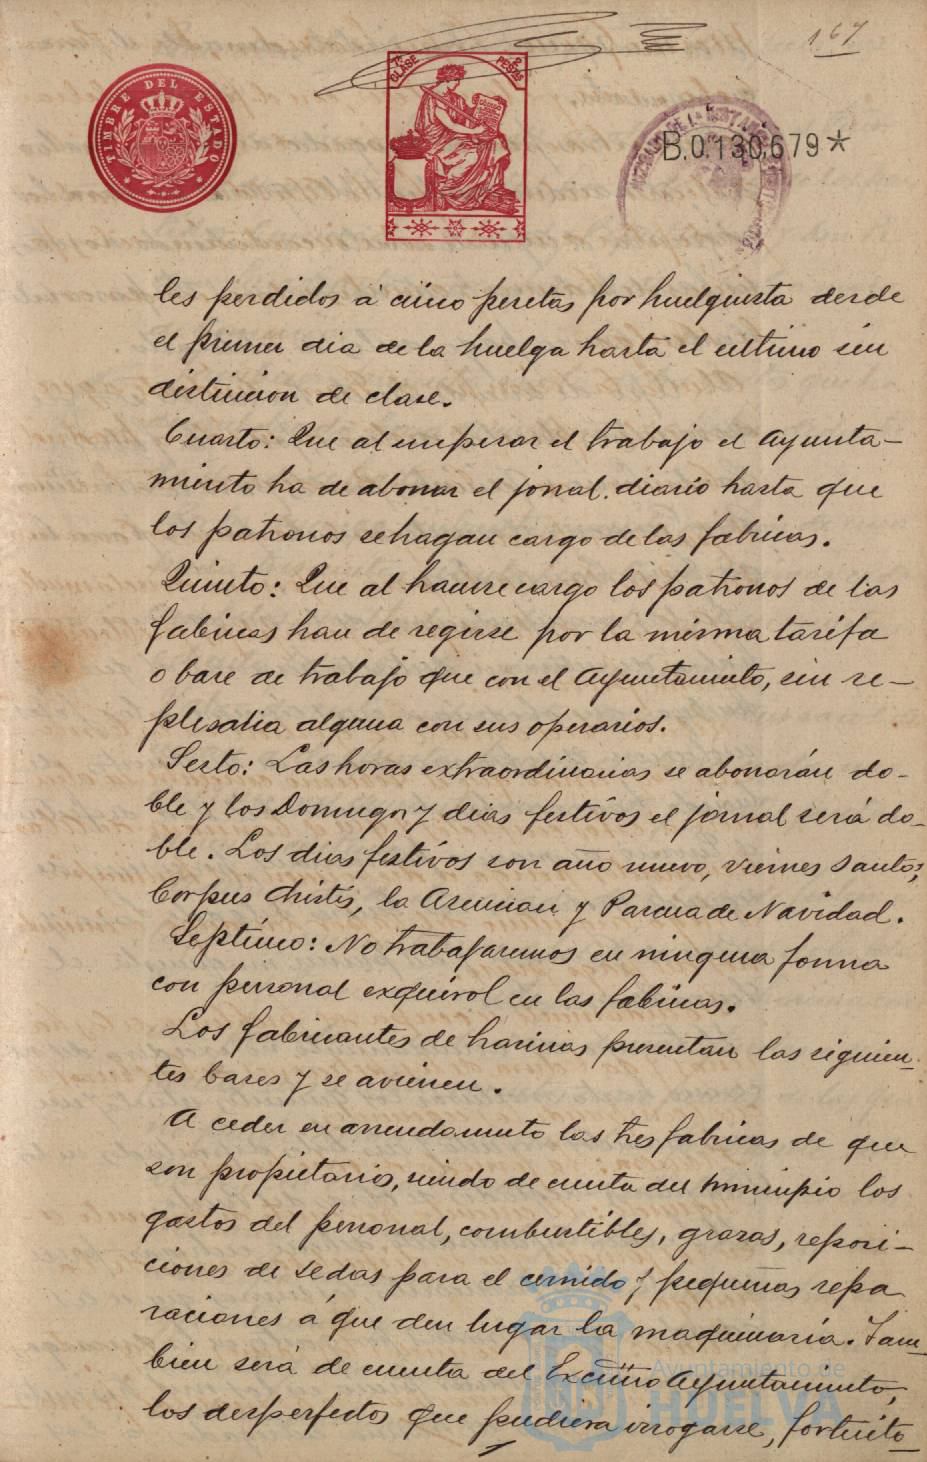 167
TIMBRE DEL ESTADO
7ª CLASE 2 PESETAS
B.0.130.679*
les perdidos á cinco pesetas por huelguista desde
el primer dia de la huelga hasta el ultimo sin
distincion de clase.
Cuarto: Que al empezar el trabajo el Ayunta-
miento ha de abonar el jornal diario hasta que
los patronos se hagan cargo de las fabricas.
Quinto: Que al hacerse cargo los patronos de las
fabricas han de regirse por la misma tarifa
o base de trabajo que con el Ayuntamiento, sin re-
plesalia alguna con sus operarios.
Sesto: Las horas extraordinarias se abonarán do-
ble y los Domingos y dias festivos el jornal será do-
ble. Los dias festivos son año nuevo, viernes Santo,
Corpus Christis, la Asencian y Pascua de Navidad.
Septimo: No trabajaremos en ninguna forma
con personal exquirol en las fabricas.
Los fabricantes de harinas presentan las siguien-
tes bases y se avienen.
A ceder en arrendamiento las tres fabricas de que
son propietarios, siendo de cuenta del Municipio los
gastos del personal, combustibles, grasas, reposi-
ciones de sedas para el cernido y pequeñas repa
raciones á que den lugar la maquinaria. Tam-
bien será de cuenta del Excmo Ayuntamiento,
los desperfectos que pudiera irrogarse, fortuito-
Ayuntamiento de
HUELVA